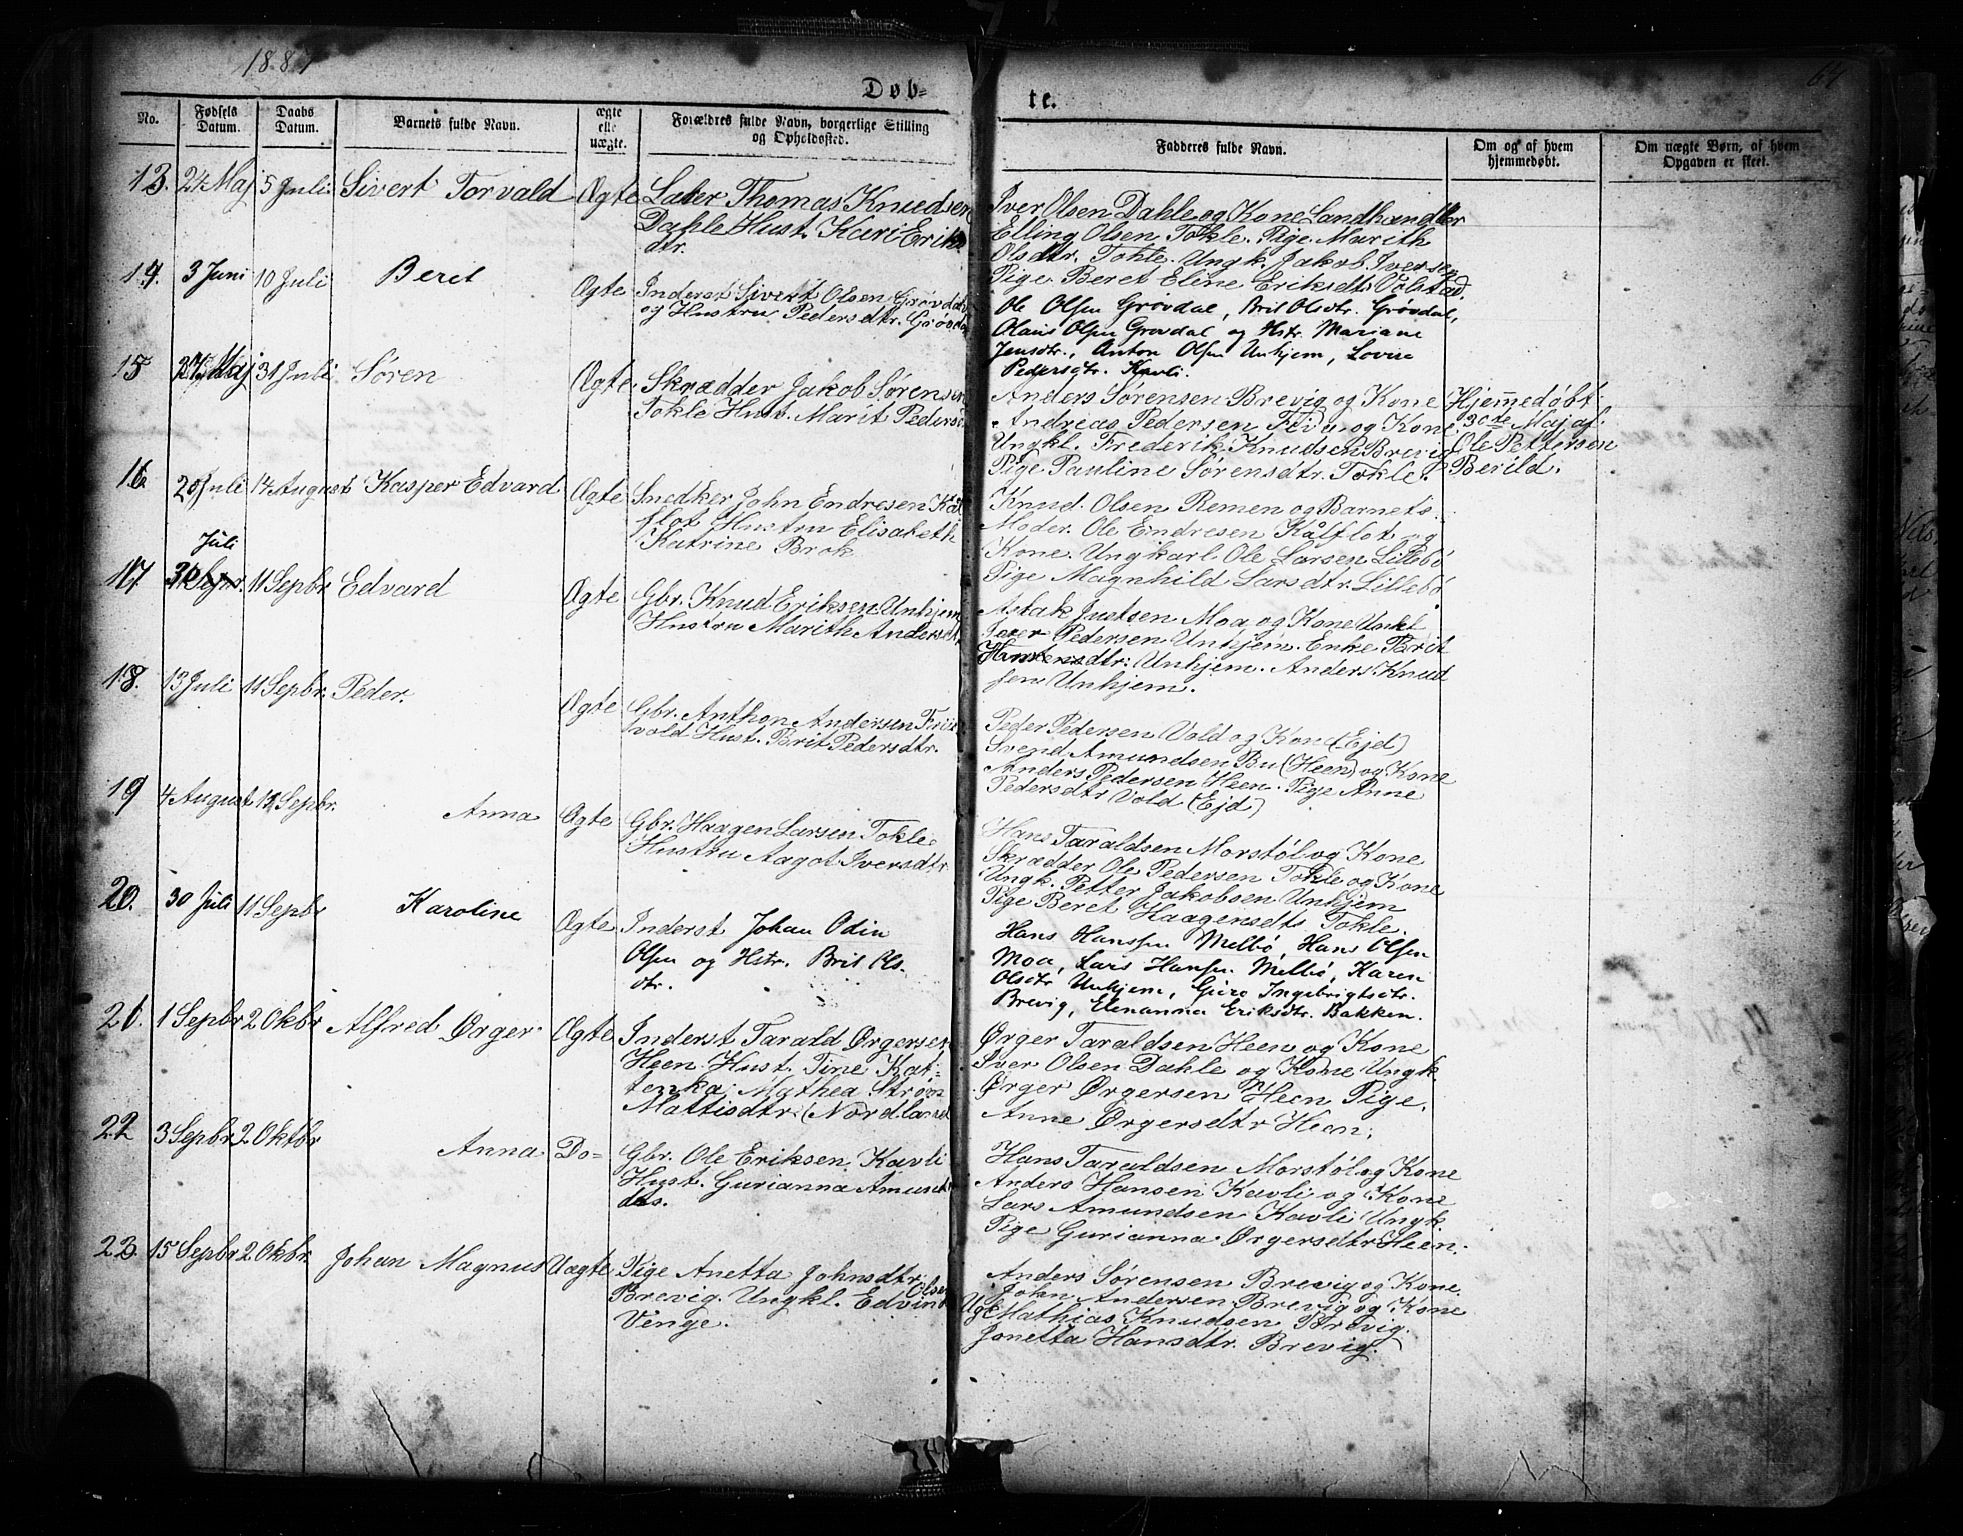 1887
64
Døb-
te.
No.
Fødsels Datum.
Daabs Datum.
Barnets fulde Navn.
ægte elle uægte.
Forældres fulde Navn, borgerlige Stilling og Opholdssted.
Fadderes fulde Navn.
Om og af hvem hjemmedøbt.
Om uægte Børn, af hvem Opgaven er skeet.
13. 24 Maj 5 Juli Sivert Torvald Ægte
Thomas Knudsen
Dahle Hust. Kari Eriks
dtr.
Iver Olsen Dahle og Kone Landhandler
Elling Olsen Tokle. Pige Marith
Olsdtr. Tokle. Ungk. Jakob Iversen
Pige Beret Eline Eriksdtr Volstad.
14. 3 Juni 10 Juli Beret Ægte
Inderst Sivert Olsen Grøvdal
og Hustru Pedersdtr. Grøvdal
Ole Olsen Grøvdal, Brit Olsdtr. Grøvdal,
Olaus Olsen Grøvdal og Hstr. Mariane
Jensdtr., Anton Olsen Unhjem, Lovise
Pedersdtr. Kavli.
15 Maj 31 Juli Søren Ægte
Skrædder Jakob Sørensen
Tokle Hust. Marit Pedersd
Anders Sørensen Brevig og Kone
Andreas Pedersen og Kone.
Ungkl. Frederik Knudsen Brevig
Pige Pauline Sørensdtr. Tokle.
Hjemmedøbt
30te Maj af
Ole Pettersen
Berild.
16 20 Juli 14 August Kasper Edvard Ægte
Snedker John Endresen Kål
flot Hustru Elisabeth
Katrine Brok
Knud Olsen Remen og Barnets
Moder. Ole Endresen Kålflot og
Kone. Ungkarl Ole Larsen Lillebø
Pige Magnhild Larsdtr. Lillebø
Juli
17. 11 Sepbr. Edvard Ægte
Gbr. Knud Eriksen Unhjem
Hustru Marith Andersdtr
Aslak Justsen Moa og Kone
Iver Pedersen Unhjem. Enke Brit
Unhjem. Anders Knud
sen Unhjem.
18. 13 Juli 11 Sepbr. Peder. Ægte
Gbr. Anthon Andersen
vold Hust. Brit Pedersdtr.
Peder Pedersen Vold og Kone (Ejd)
Svend Amundsen Bu (Heen) og Kone
Anders Pedersen Heen. Pige Anne
Pedersdtr Vold (Ejd)
19 4 August 11 Sepbr. Anna Ægte
Gbr. Haagen Larsen Tokle.
Hustru Aagot Iversdtr
Hans Taraldsen Morstøl og Kone
Skrædder Ole Pedersen Tokle og Kone
Ungk. Petter Jakobsen Unhjem
Pige Beret Haagensdtr Tokle.
20. 30 Juli 11 Sepbr Karoline Ægte
Inderst Johan Odin
Olsen og Hstr. Brit Ols-
dtr.
Hans Hanssen Melbø, Hans Olsen
Moa, Lars Hansen Melbø, Karen
Olsdtr Unhjem, Guro Ingebrigtsdtr.
Brevig, Elenanna Eriksdtr. Bakken.
21. 1 Sepbr 2 Okbr Alfred Ørger Ægte
Inderst Tarald Ørgersen
Heen. Hust. Tine Kat-
Mathea Strøm
Mattisdtr. (Nordland
Ørger Taraldsen Heen og Kone
Iver Olsen Dahle og Kone Ungk.
Ørger Ørgersen Heen Pige.
Anne Ørgersdtr Heen.
22 3 Sepbr 2 Oktbr Anna Do-
Gbr. Ole Eriksen Kavli
Hust. Gurianna Amund
dts.
Hans Taraldsen Morstøl og Kone
Anders Hansen Kavli og Kone
Lars Amundsen Kavli Ungk.
Pige Gurianna Ørgersdtr Heen.
23. 15 Sepbr 2 Okbr. Johan Magnus Uægte
Pige Anetta Johnsdtr.
Brevig. Ungkl. Edvind Olsen
Venge.
Anders Sørensen Brevig og Kone.
John Andersen Brevig og Kone
Ugk Mathias Knudsen Brevig.
Jonetta Hansdtr. Brevig.